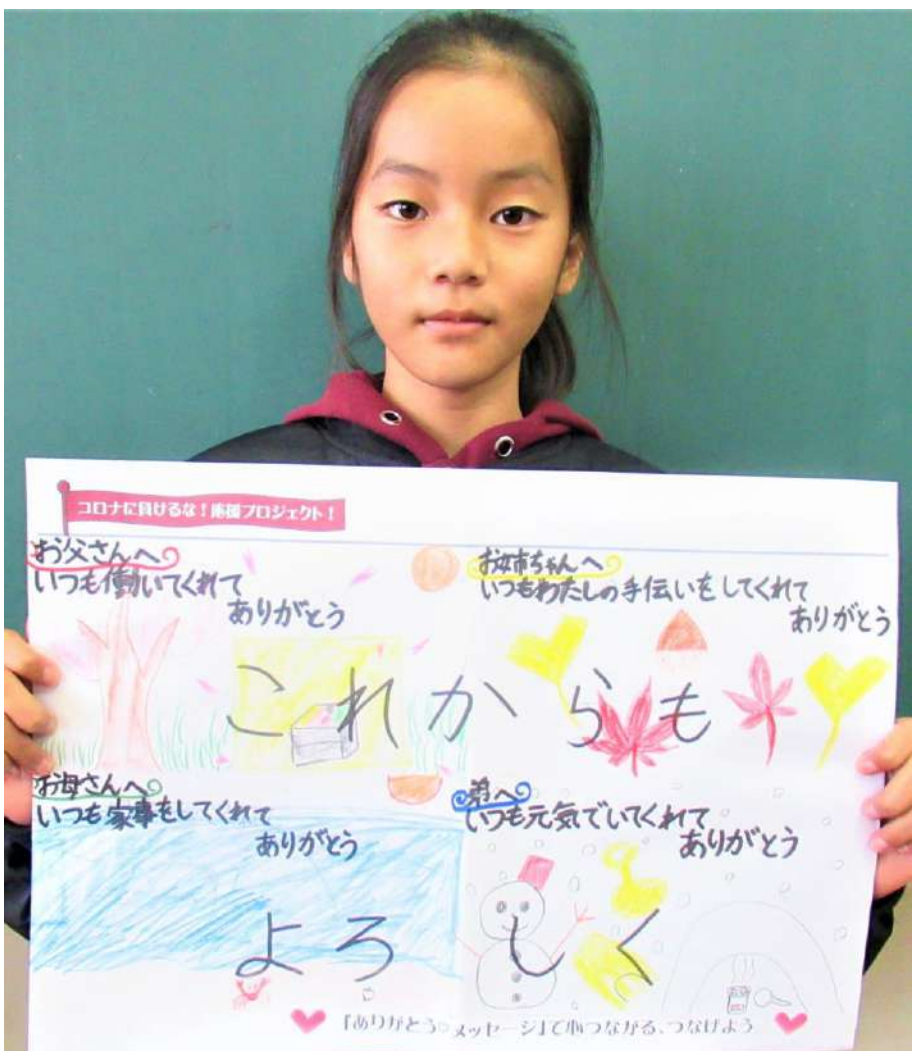 コロナに負けるな！応援プロジェクト！
お父さんへ
いつも働いてくれて
ありがとう
お姉ちゃんへ
いつもわたしの手伝いをしてくれて
ありがとう
これからも
お母さんへ
いつも家事をしてくれて
ありがとう
弟へ
いつも元気でいてくれて
ありがとう
よろしく
「ありがとう。メッセージ」で心つながる、つなげよう